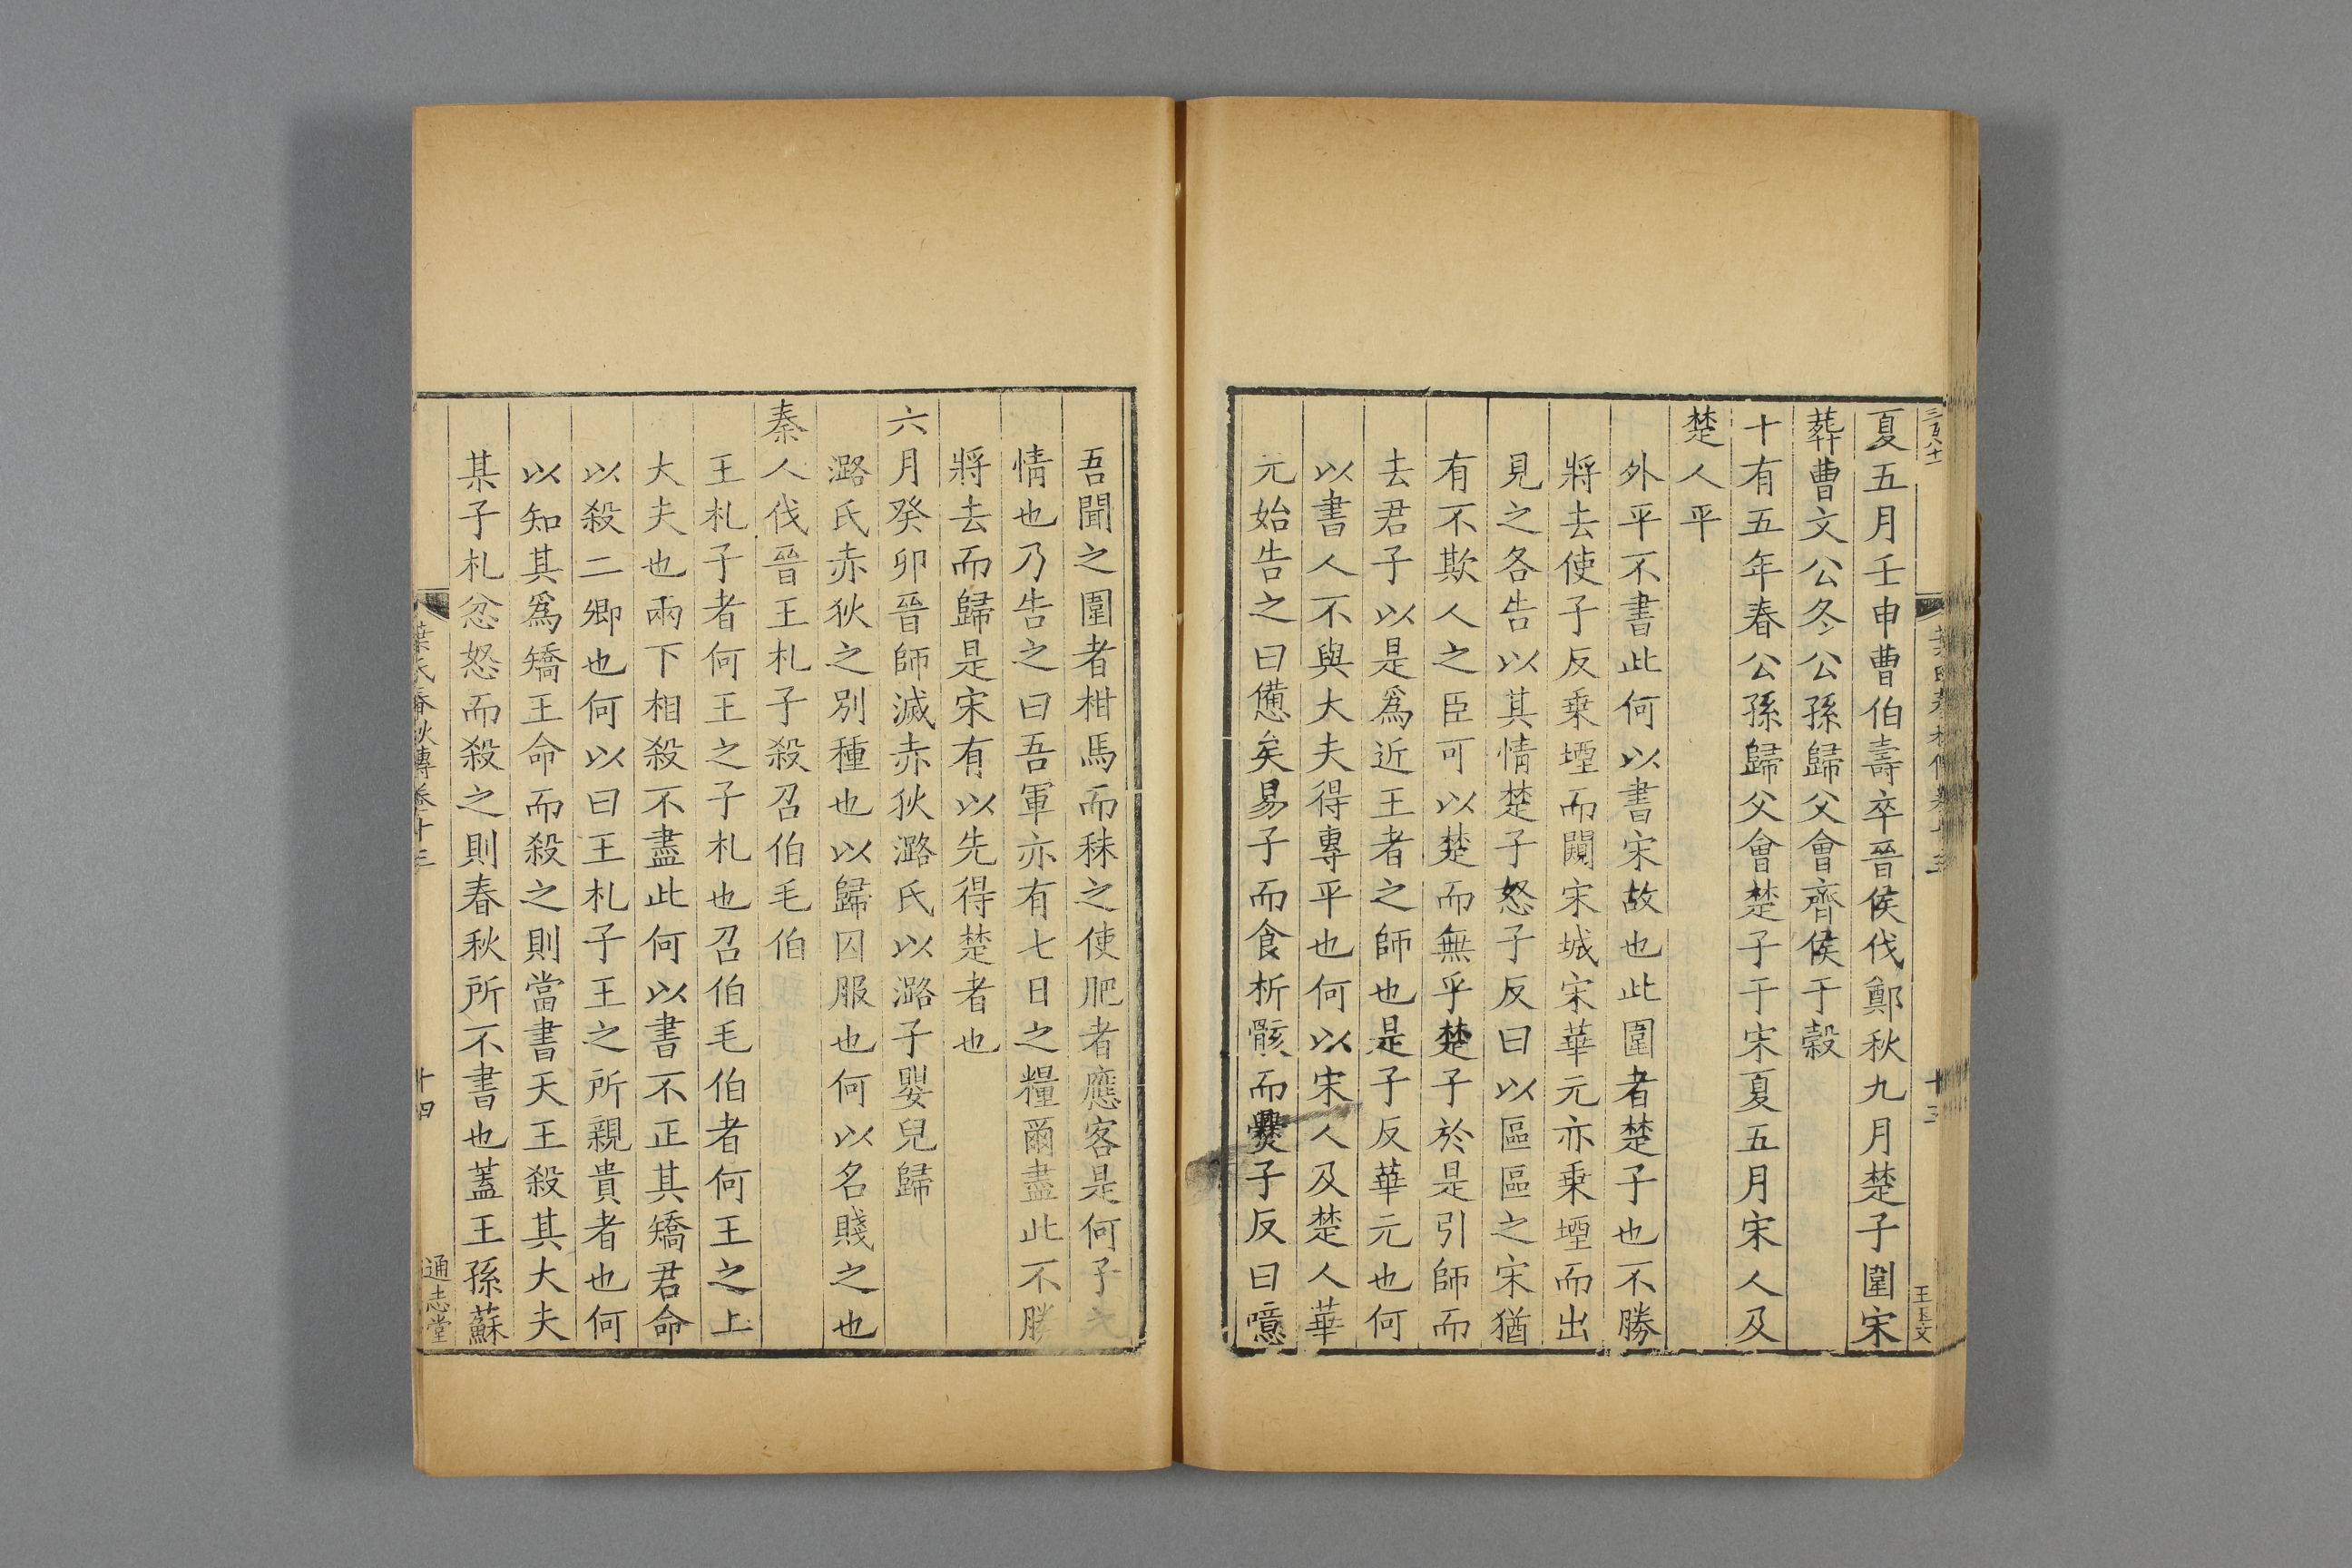 夏五月壬申曹伯壽卒晉侯伐鄭秋九月楚子圍宋
葬曹文公冬公孫歸父會齊侯于穀
十有五年春公孫歸父會楚子于宋夏五月宋人及
楚人平
外平不書此何以書宋故也此圍者楚子也不勝
將去使子反乗堙而闚宋城宋華元亦乗堙而出
見之各告以其情楚子怒子反曰以區區之宋猶
有不欺人之臣可以楚而無乎楚子於是引師而
去君子以是爲近王者之師也是子反華元也何
以書人不與大夫得專平也何以宋人及楚人華
元始告之曰憊矣易子而食析骸而爨子反曰噫
吾聞之圍者柑馬而秣之使肥者應客是何子之
情也乃告之曰吾軍亦有七日之糧爾盡此不勝
將去而歸是宋有以先得楚者也
六月癸卯晉師滅赤狄潞氏以潞子嬰兒歸
潞氏赤狄之別種也以歸囚服也何以名賤之也
秦人伐晉王札子殺召伯毛伯
王札子者何王之子札也召伯毛伯者何王之上
大夫也兩下相殺不盡此何以書不正其矯君命
以殺二卿也何以曰王札子王之所親貴者也何
以知其爲矯王命而殺之則當書天王殺其大夫
某子札忿怒而殺之則春秋所不書也蓋王孫蘇
葉氏春秋傳卷十三
十四
通志堂